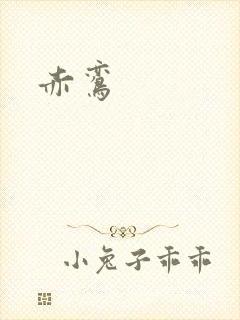 赤鸾
小兔子乖乖